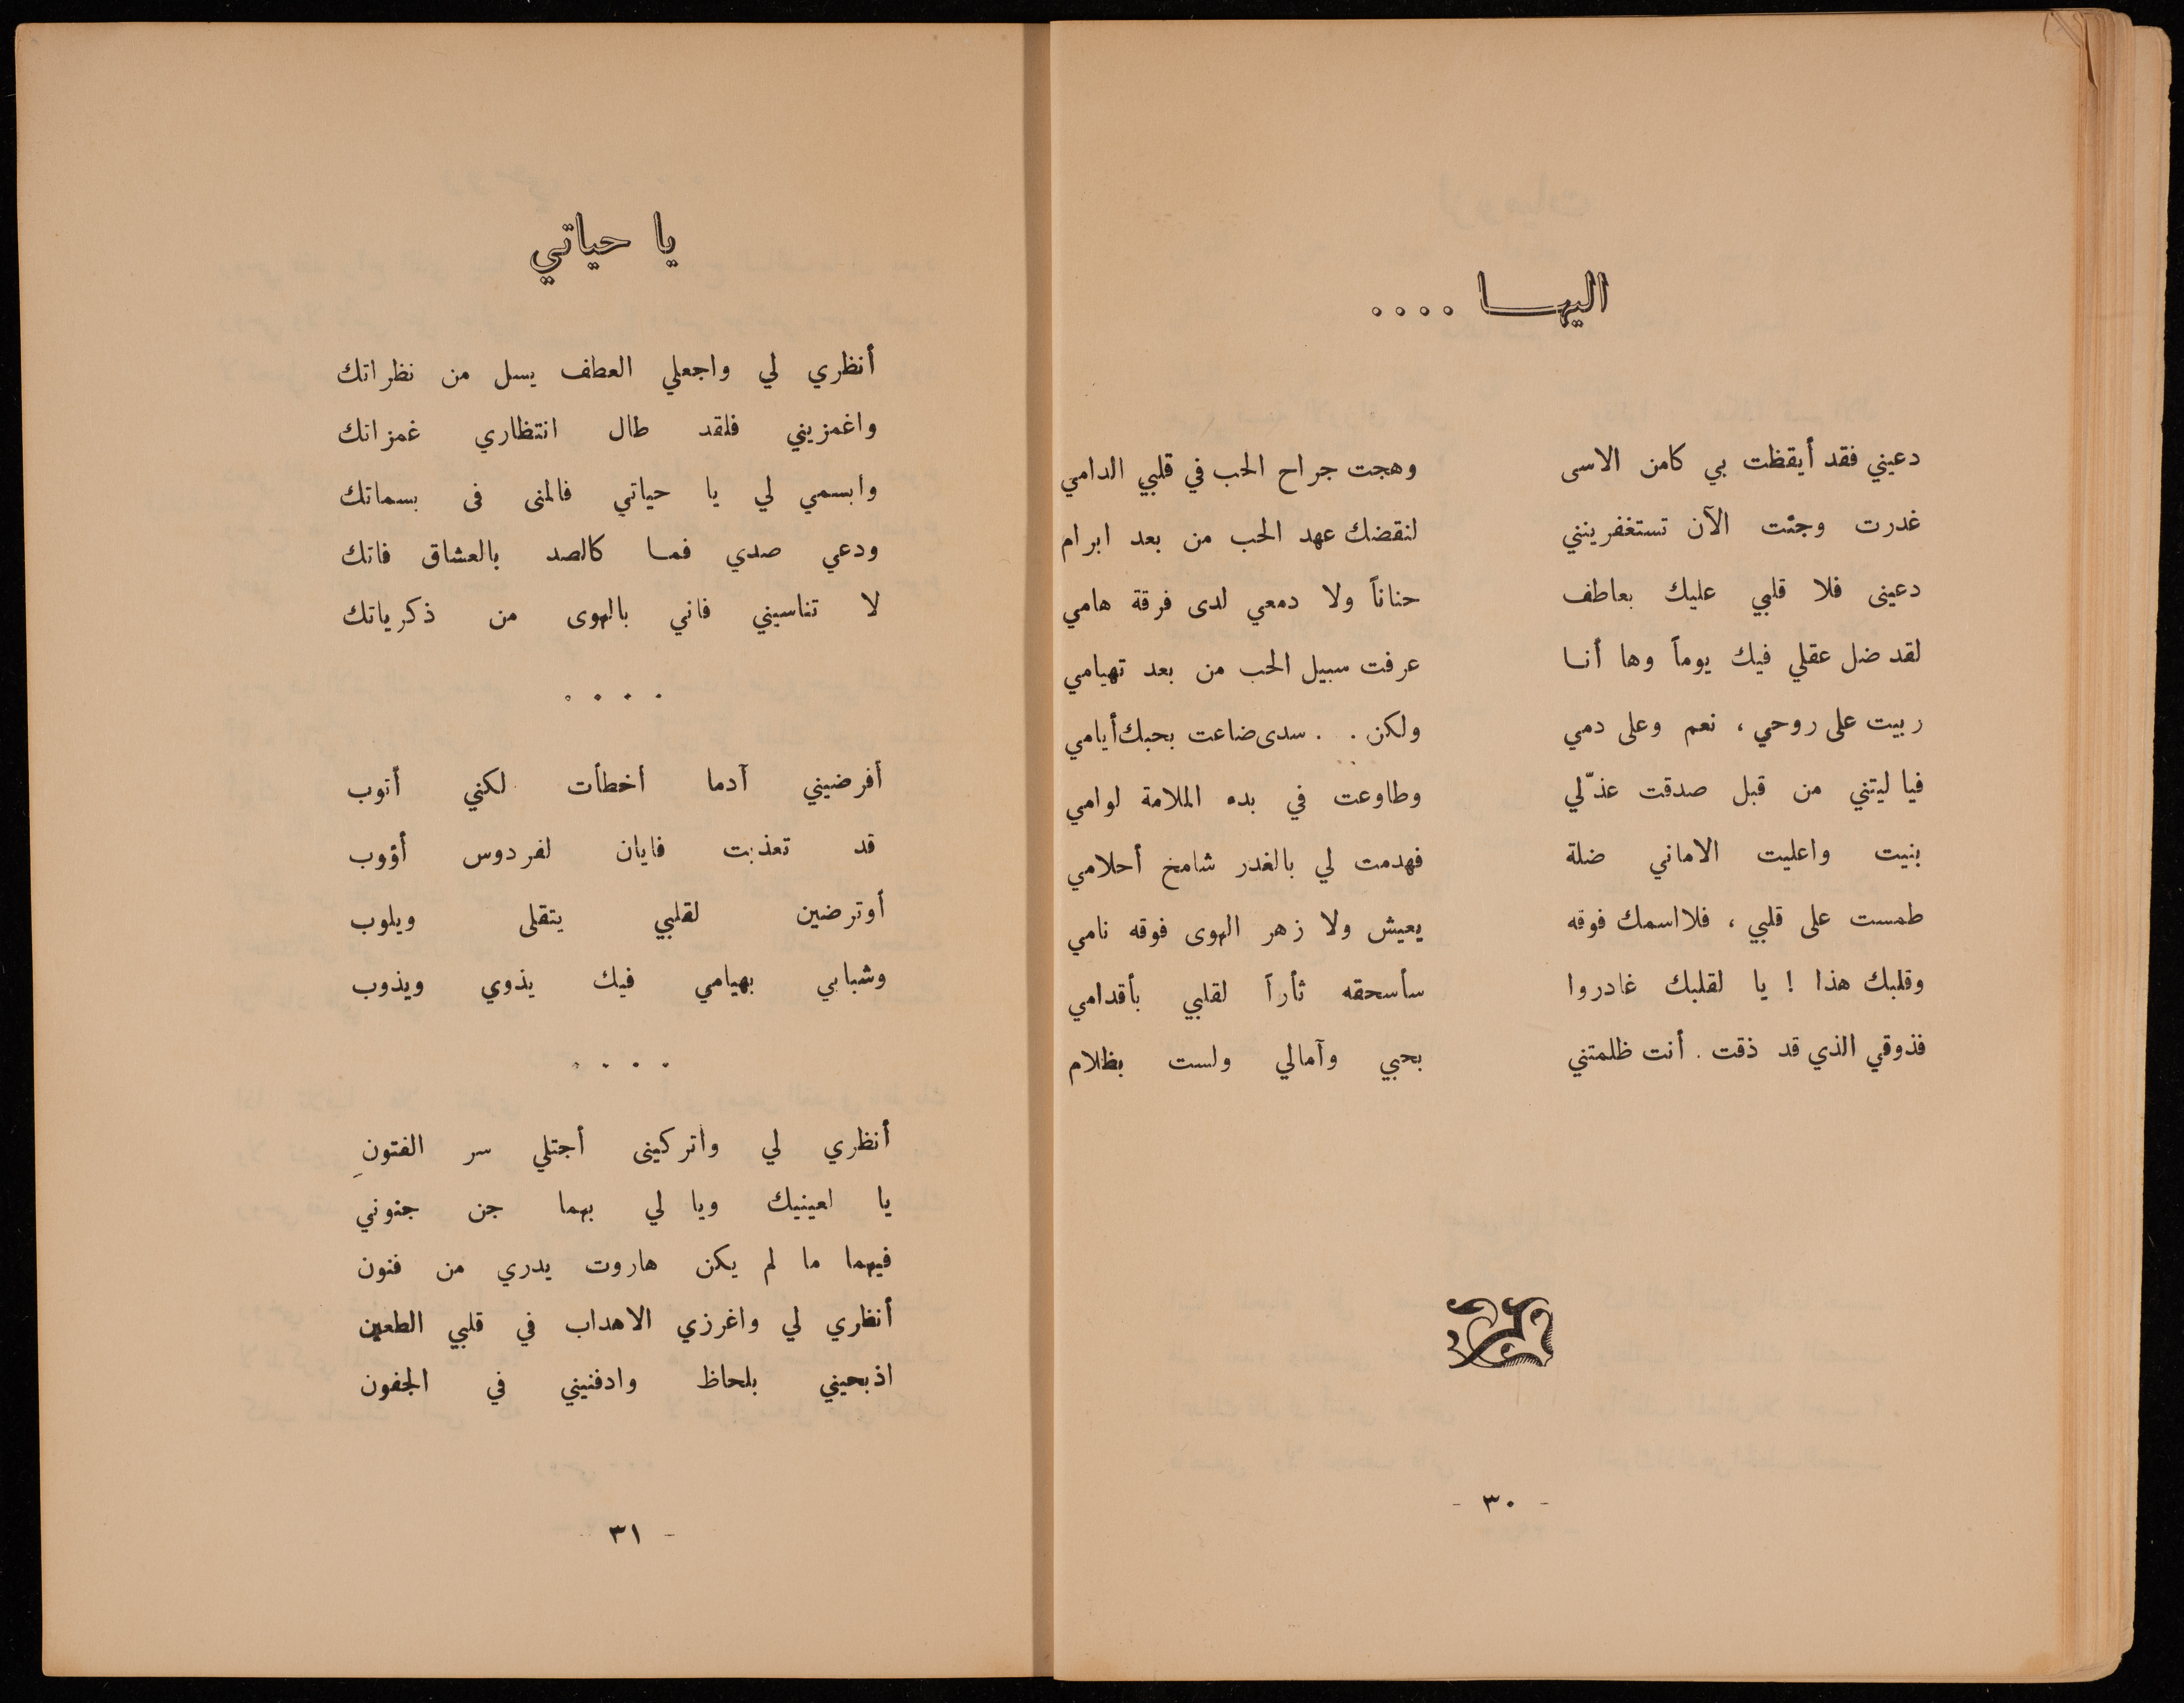 اليها ....
دعيني فقد أيقظت بي كامن الاسى وهجت جراح الحب في قلبي الدامي
غدرت وجئت الآن تستغفرينني لنقضك عهد الحب من بعد ابرام
دعينى فلا قلبي عليك بعاطف حناناً ولا دمعي لدى فرقة هامي
لقد ضل عقلي فيك يوماً وها أنا عرفت سبيل الحب من بعد تهيامي
ربيت على روحي ، نعم وعلى دمي ولكن . . سدى ضاعت بحبك أيامي
فيا ليتني من قبل صدقت عذّلي وطاوعت في بده الملامة لوامي
بنيت واعليت الاماني ضلة فهدمت لي بالغدر شامخ أحلامي
طمست على قلبي ، فلا اسمك فوقه يعيش ولا زهر الهوى فوقه نامي
وقلبك هذا ! يا لقلبك غادروا سأسحقه ثأراً لقلبي بأقدامي
فذوقي الذي قد ذقت . أنت ظلمتني بحبي وآمالي ولست بظلام
- ٣٠ -
يا حياتي
أنظري لي واجعلي العطف يسل من نظراتك
واغمزيني فلقد طال انتظاري غمزاتك
وابسمي لي يا حياتي فالمنى فى بسماتك
ودعي صدي فما كالصد بالعشاق فاتك
لا تناسيني فاني بالهوى من ذكرياتك
. . . .
أفرضيني آدما أخطأت لكني أتوب
قد تعذبت فايان لفردوس أؤوب
أوترضين لقلبي يتقلى ويلوب
وشبابي بهيامي فيك يذوي ويذوب
. . . .
أنظري لي واتركينى أجتلي سر الفتونِ
يا لعينيك ويا لي بهما جن جنوني
فيهما ما لم يكن هاروت يدري من فنون
أنظري لي واغرزي الاهداب في قلبي الطعين
اذبحيني بلحاظ وادفنيني في الجفون
- ٣١